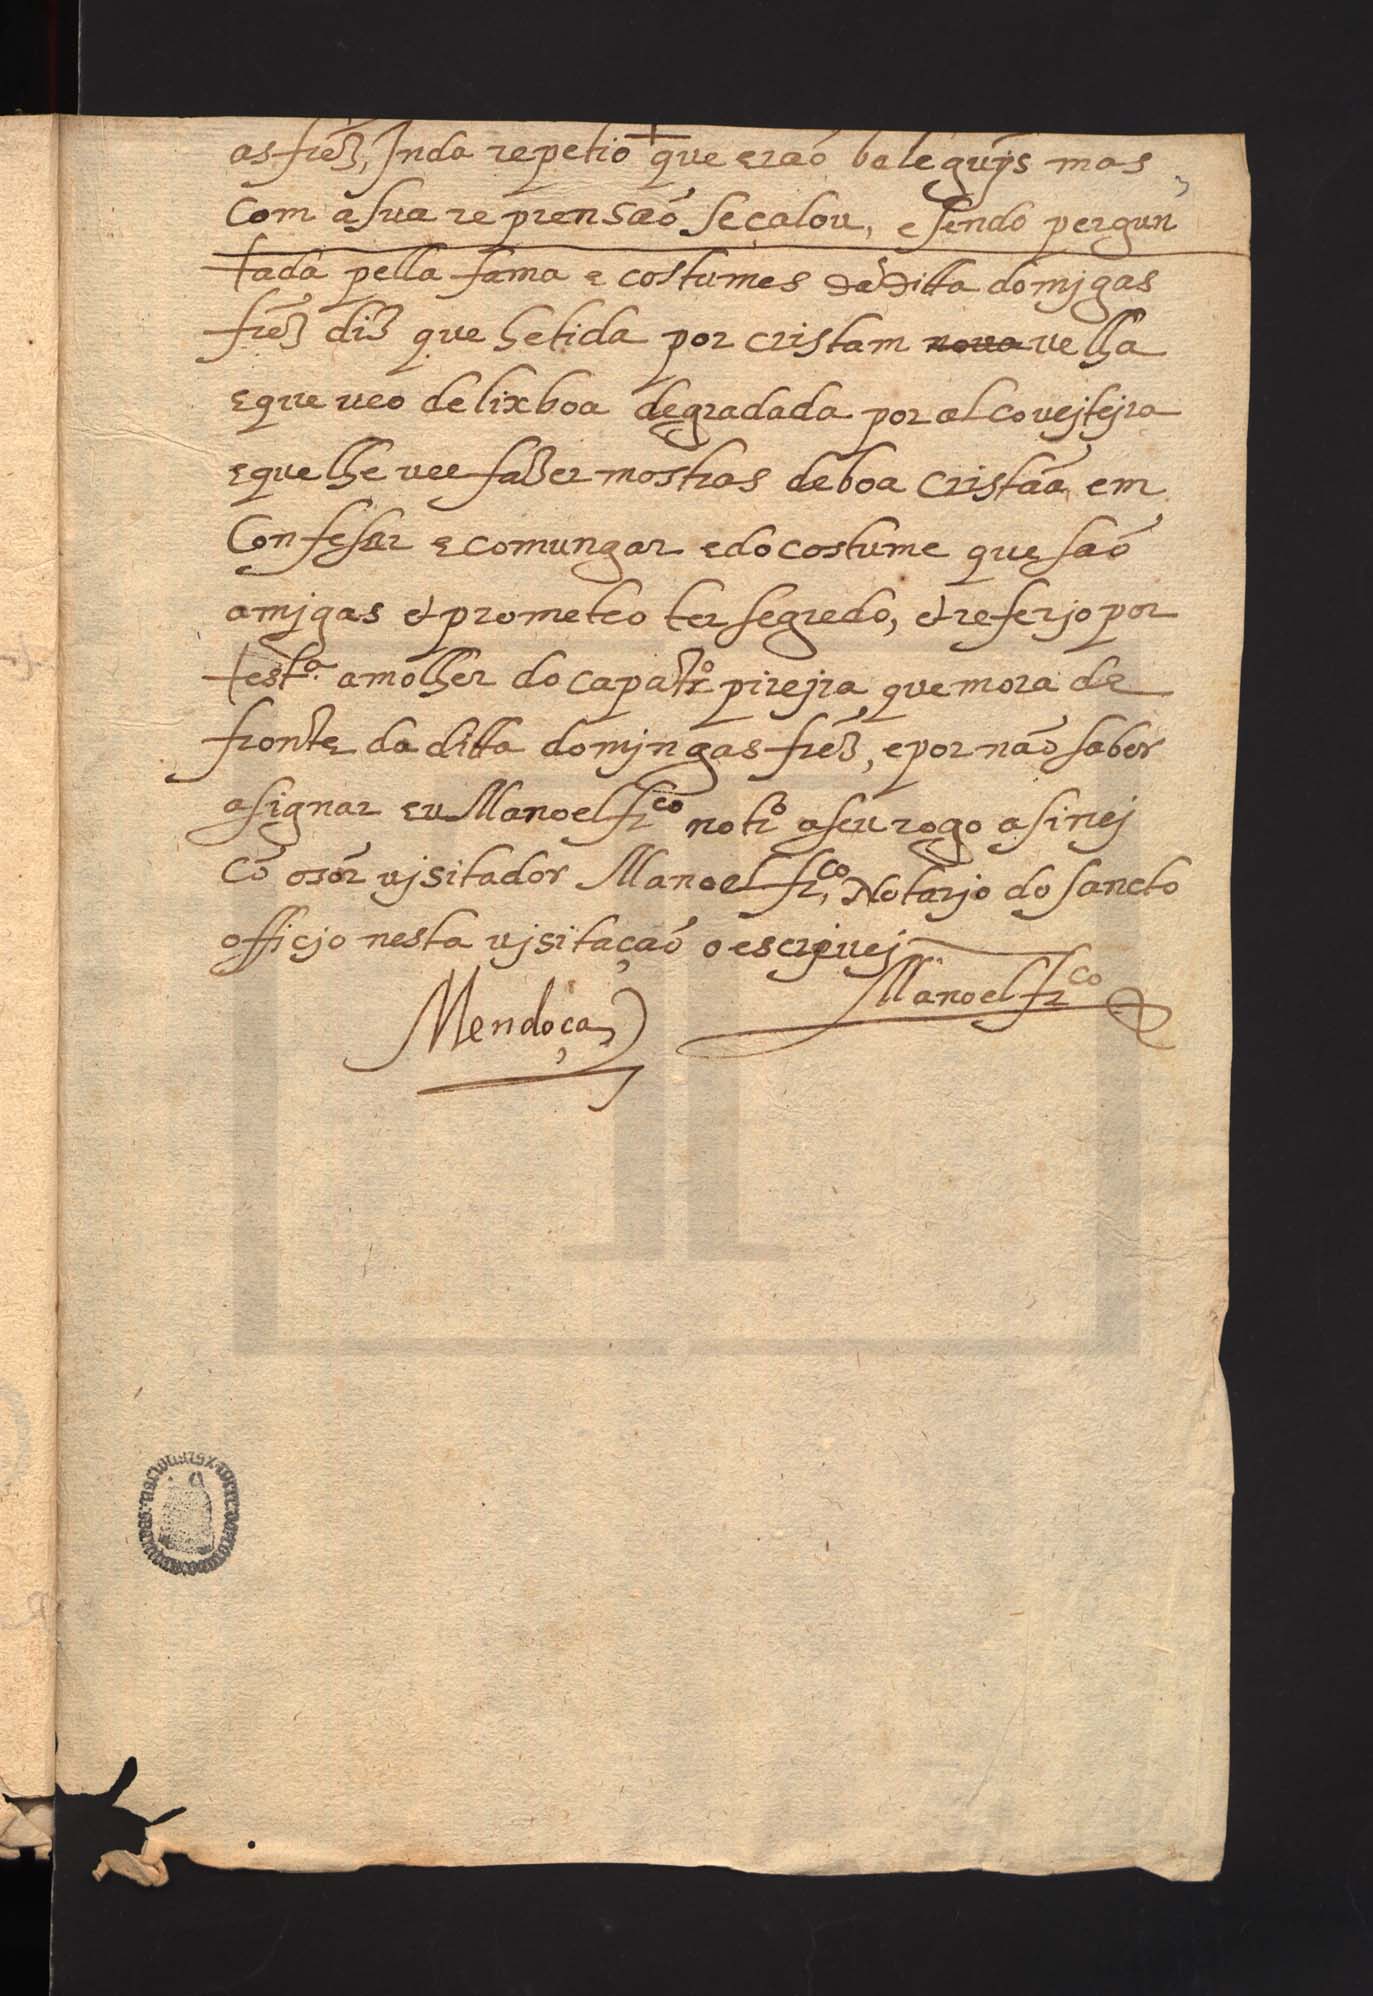 as frẽz, Inda repetio que eraõ baleguĩs mas
com a sua reprensaõ se calou, e sendo pergun
tada pella fama e costumes da ditta domĩgas
frẽz diz que he tida por cristam nova velha
e que veo de lixboa degradada por alcovejtejra
e que lhe vee fazer mostras de boa cristãa em
Confesar e comungar e do costume que saõ
amjgas et prometeo ter segredo, et referjo por
testª. a molher do capatrº pirejra que mora de
fronte da ditta domjngas frẽz, e por naõ saber
asignar eu Manoel frco notrº a seu rogo asinej
cõ o sõr vjsitador Manoel frco, Notarjo do sancto
officjo nesta vjsitaçaõ o escrjvej
Mendoça
Manoel frco